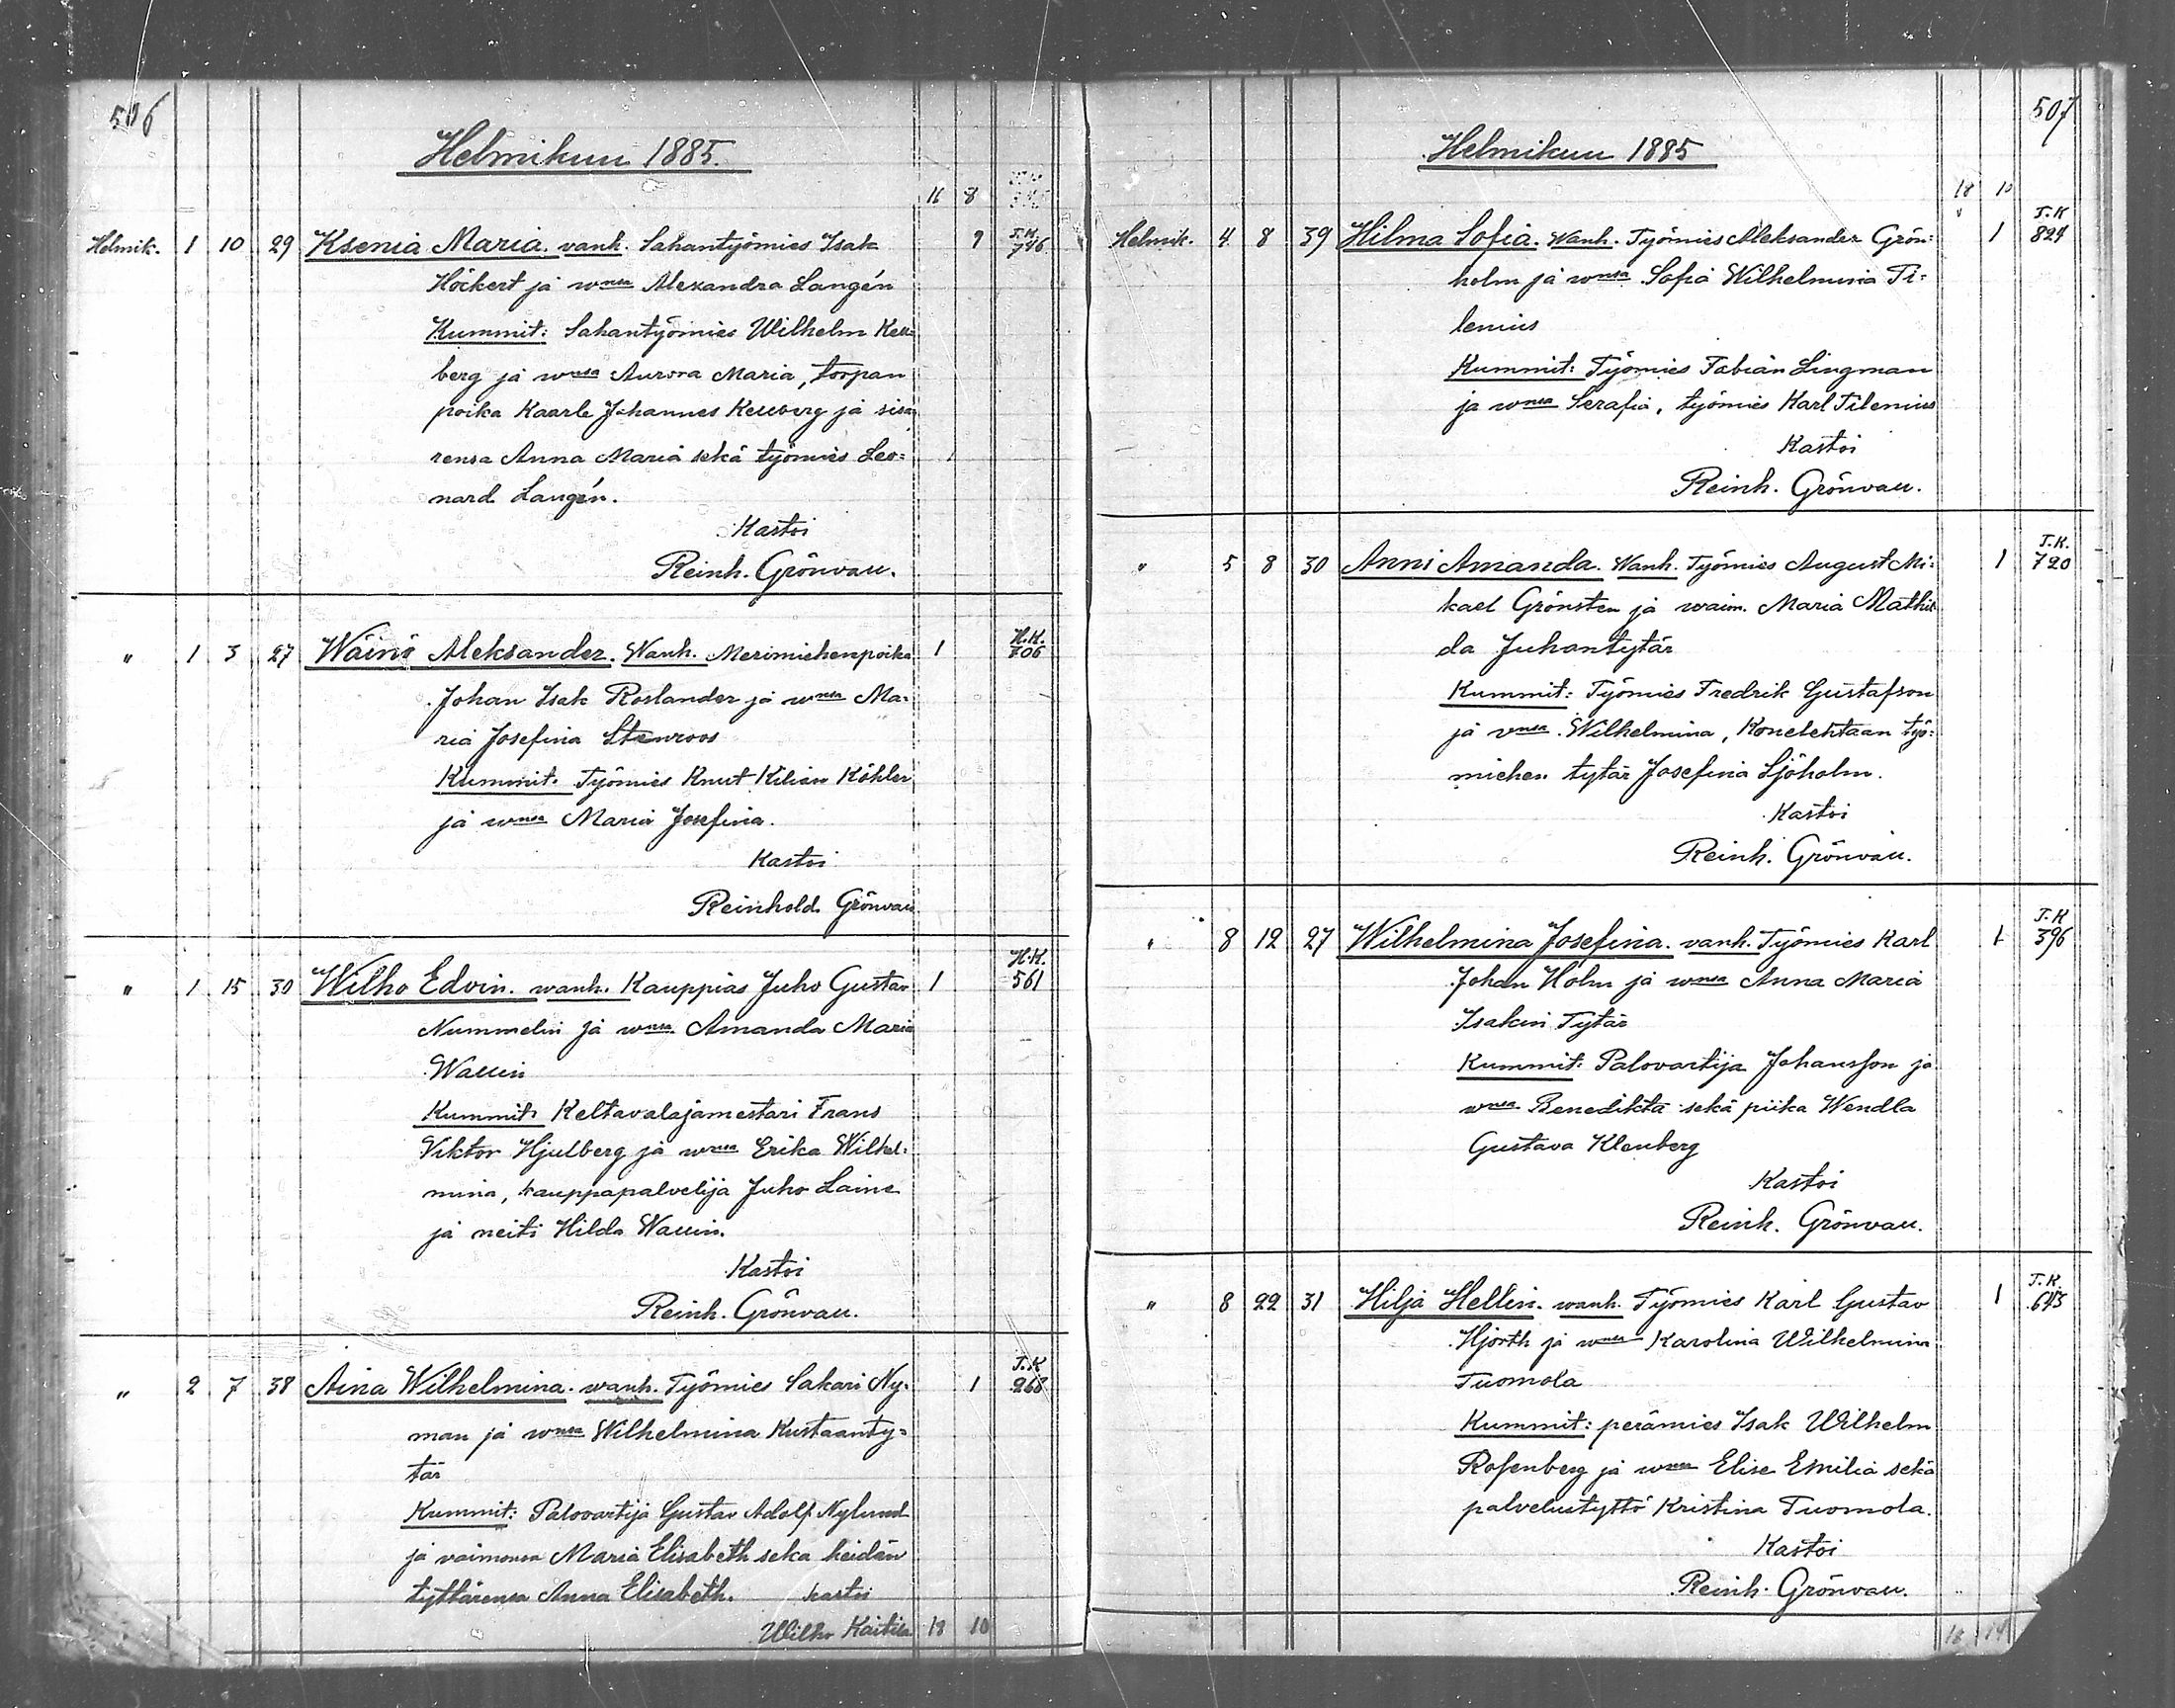 506
Helmikuu 1885.
16 8
Helmik. 1 10 29 Ksenia Maria. vanh. Sahantyömies Isak 9 T.K. 746
Höckert ja wnsa Alexandra Langén
Kummit: Sahantyömies Wilhelm Kell=
berg ja wnsa Aurora Maria, torpan
poika Kaarle Johannes Kellberg ja sisa
rensa Anna Maria sekä työmies Leo=
nard Langén.
Kastoi
Reinh. Grönvall.
" 1 3 27 Wäinö Aleksander. Wanh. Merimiehenpoika 1 H.K. 706
Johan Isak Roslander ja wnsa Ma=
ria Josefina Stenroos
Kummit. Työmies Knut Kilian Köhler
ja wnsa Maria Josefina.
Kastoi
Reinhold Grönvall
" 1 15 30 Wilho Edvin. wanh. Kauppias Juho Gustav 1 H.K. 561
Nummelin ja wnsa Amanda Maria
Wallin
Kummit: Keltavalajamestari Frans
Viktor Hjulberg ja wnsa Erika Wilhel=
mina, kauppapalvelija Juho Laine
ja neiti Hilda Wallin.
Kastoi
Reinh. Grönvall.
" 2 7 38 Aina Wilhelmina. wanh. Työmies Sakari Ny= 1 T.K 268
man ja wnsa Wilhelmina Kustaanty=
tär
Kummit: Palovartija Gustav Adolf Nylund
ja vaimonsa Maria Elisabeth seka heidän
tyttärensa Anna Elisabeth. kastoi
Wilho Kaitila 18 10
507
Helmikuu 1885
18 10
Helmik. 4 8 39 Hilma Sofia. Wanh. Työmies Aleksander Grön= 1 T.K 824
holm ja wnsa Sofia Wilhelmina Ti=
lenius
Kummit: Työmies Fabian Lingman
ja wnsa Serafia, työmies Karl Tilenius
Kastoi
Reinh. Grönvall.
" 5 8 30 Anni Amanda. Wanh. Työmies August Mi= 1 T.K. 720
kael Grönsten ja waim. Maria Mathil
da Juhontytär
Kummit: Työmies Fredrik Gustafson
ja vnsa Wilhelmina, Konetehtaan työ=
miehen tytär Josefina Sjöholm.
Kastoi
Reinh. Grönvall.
" 8 12 27 Wilhelmina Josefina. vanh. Työmies Karl 1 T.K 396
Johan Holm ja wnsa Anna Maria
Isakin Tytär
Kummit: Palovartija Johansson ja
wnsa Benedikta sekä piika Wendla
Gustava Klenberg
Kastoi
Reinh. Grönvall.
" 8 22 31 Hilja Hellin. wanh. Työmies Karl Gustav 1 T.K. 643
Hjorth ja wnsa Karolina Wilhelmina
Tuomola
Kummit: perämies Isak Wilhelm
Rosenberg ja wnsa Elise Emilia sekä
palvelustyttö Kristina Tuomola.
Kastoi
Reinh. Grönvall.
18 14